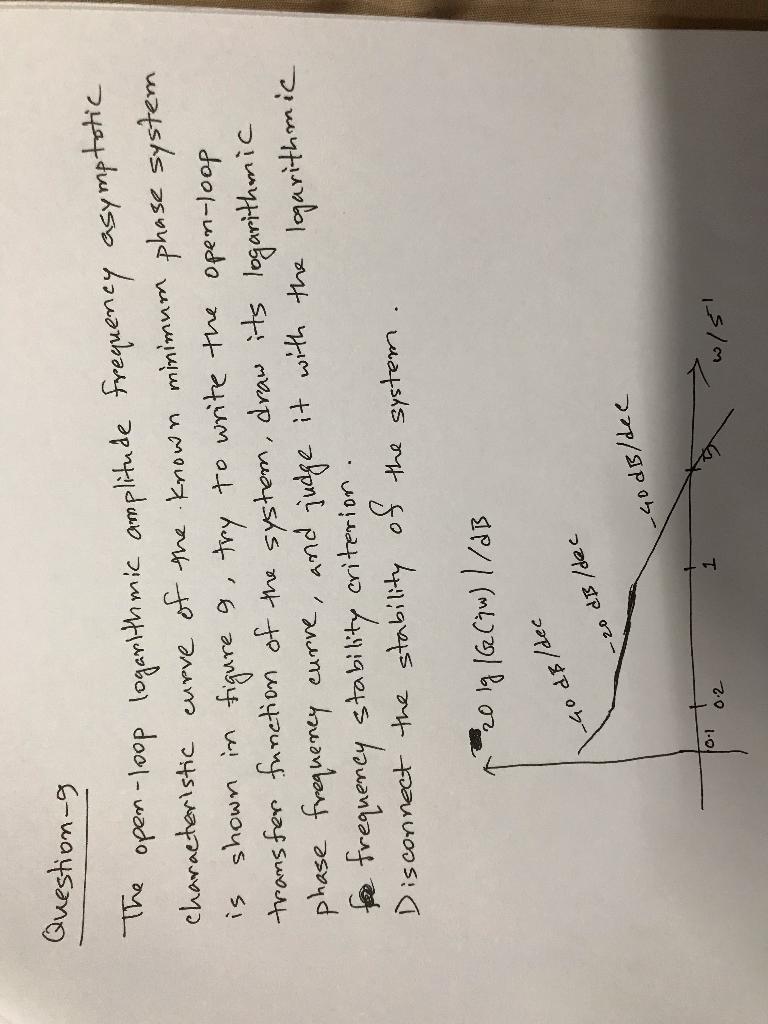 Question-9
The open-loop logarithmic amplitude frequency asymptotic
characteristic curve of the known minimum phase system
is shown in figure 9, try to write the open-loop
transfer function of the system, draw its logarithmic
phase frequency curve, and judge it with the logarithmic
frequency stability criterion.
Disconnect the stability of the system.
20 lg |G(jw)|/dB
-40 dB/dec
-20 dB/dec
-40 dB/dec
0.1 0.2 1 5 w/s¹